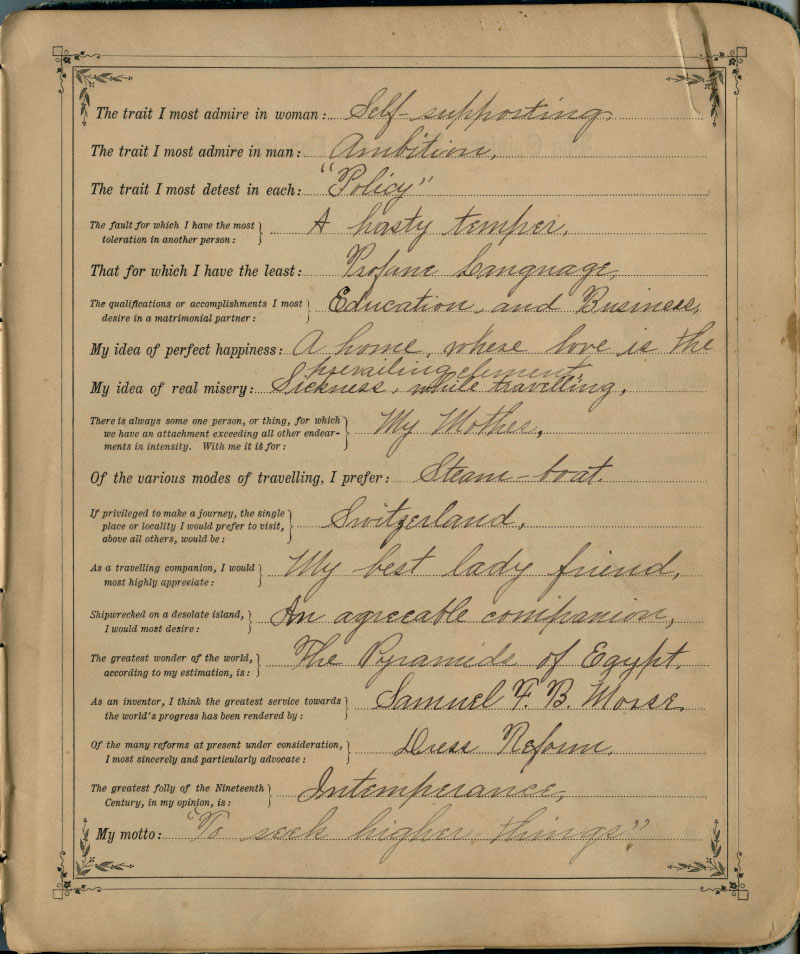 The trait I most admire in woman: Self-supporting.
The trait I most admire in man: Ambition.
The trait I most detest in each: "Policy"
The fault for which I have the most
toleration in another person: } A hasty temper.
That for which I have the least: Profane Language.
The qualifications or accomplishments I most
desire in a matrimonial partner: } Education, and Business.
My idea of perfect happiness: A home, where love is the
prevailing element.
My idea of real misery: Sickness, while travelling.
There is always some one person, or thing, for which
we have an attachment exceeding all other endear-
ments in intensity. With me it is for: } My Mother.
Of the various modes of travelling, I prefer: Steam-boat.
If privileged to make a journey, the single
place or locality I would prefer to visit,
above all others, would be: } Switzerland.
As a travelling companion, I would
most highly appreciate: } My best lady friend.
Shipwrecked on a desolate island,
I would most desire: } An agreeable companion,
The greatest wonder of the world,
according to my estimation, is: } The Pyramids of Egypt.
As an inventor, I think the greatest service towards
the world's progress has been rendered by: } Samuel F. B. Morse.
Of the many reforms at present under consideration,
I most sincerely and particularly advocate: } Dress Reform.
The greatest folly of the Nineteenth
Century, in my opinion, is: } Intemperance,
My motto: "To seek higher things".